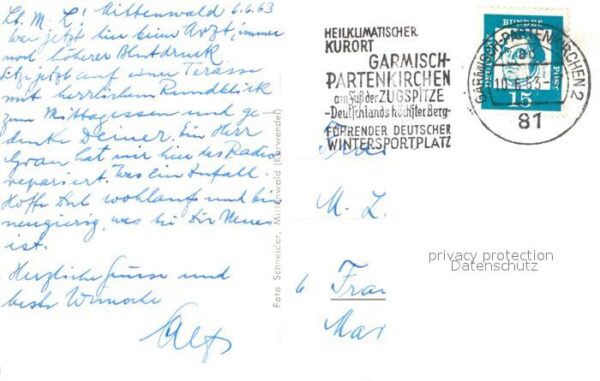 Lb. M. L.! Mittenwald 6.6.63
War jetzt hier beim Arzt, immer
noch höherer Blutdruck
Sitze jetzt auf einer Terasse
mit herrlichem Rundblick
zum Mittagessen und ge-
denke Deiner. Ein Herr
Grau hat mir hier das Radio
repariert. Was ein Zufall.
Hoffe Dich wohlauf und bin
neugierig, was bei Dir Neues
ist.
Herzliche Grüsse und
beste Wünsche
Alf
Foto Schneider, Mittenwald (Karwendel)
HEILKLIMATISCHER
KURORT
GARMISCH-
PARTENKIRCHEN
am Fuß der ZUGSPITZE
-Deutschlands höchster Berg-
FÜHRENDER DEUTSCHER
WINTERSPORTPLATZ
DEUTSCHE BUNDESPOST
15
GARMISCH-PARTENKIRCHEN 2
81
Frau
M. L.
privacy protection
Datenschutz
6 Fran
Mar